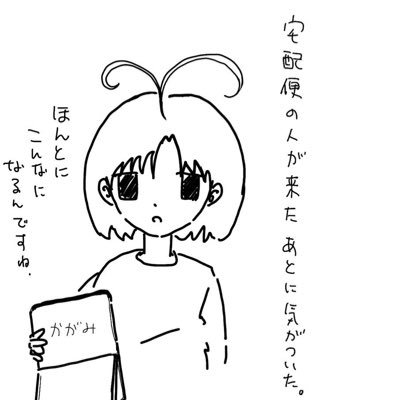 宅配便の人が来たあとに気がついた。
ほんとに
こんなに
なるんですね.
かがみ